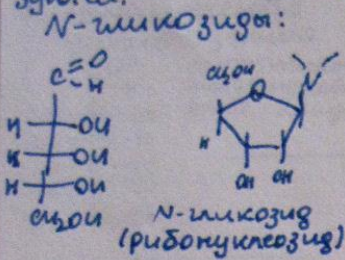 N-гликозиды:
C=O
H
CH₂OH
O
N
H OH
H OH
H
H OH
OH OH
CH₂OH
N-гликозид
(рибонуклеозид)